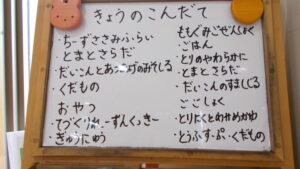 きょうのこんだて
・ちーずささみふらい
・とまとさらだ
・だいこんとあつあげのみそしる
・くだもの
おやつ
・てづくりれーずんくっきー
・ぎゅうにゅう
ももぐみごぜんしょく
・ごはん
・とりのやわらかに
・とまとさらだ
・だいこんのすましじる
ごごしょく
・とりにくとわかめかゆ
・とうふすーぷ・くだもの